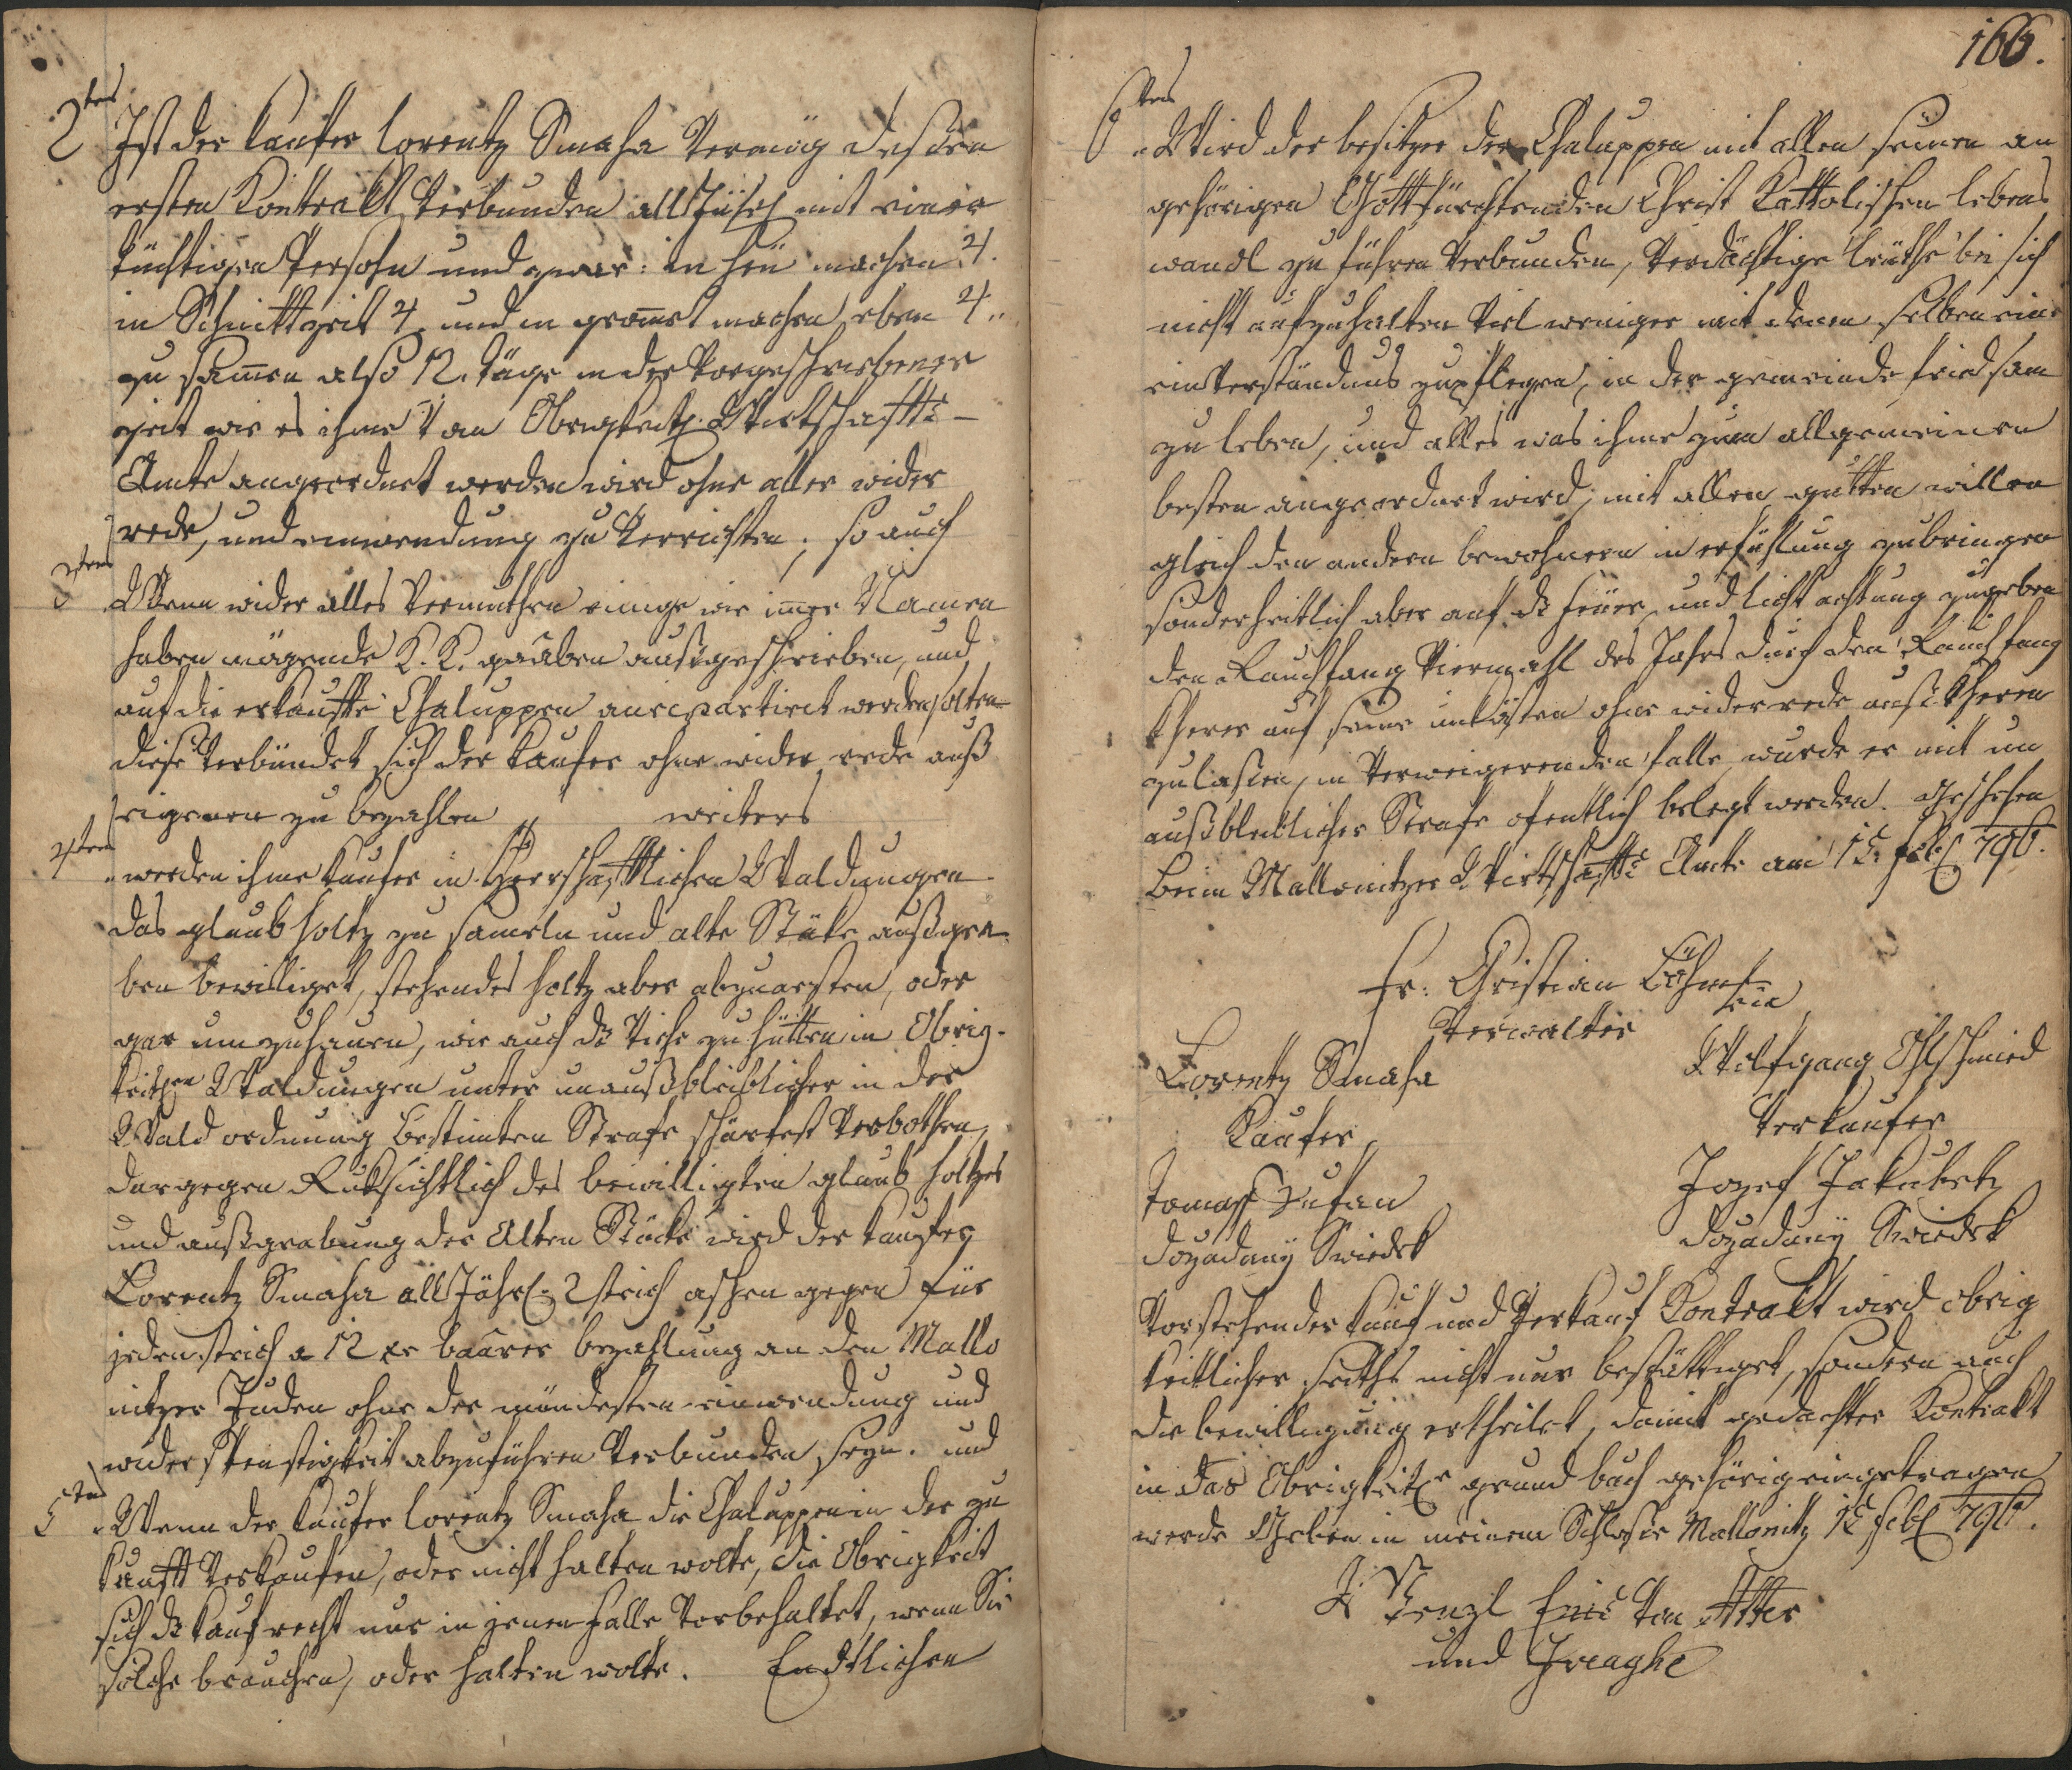 2tens Ist der Kaufer Lorentz Smaha Vermög dessen
ersten Kontrakt Verbunden all Jährl mit einer
tüchtigen Persohn und zwar: in Heu machen 4.
in Schnittzeit 4. und in gromet machen eben 4..
zu sammen also 12. Täge in der Vorgeschriebener
zeit wie es ihme Vom Obrigkeitl. Wirtschaffts-
Amte angeordnet werden wird ohne aller wider
rede, und einwendung zu Verrichten; so auch
3tens Wenn wider alles Vermuthen einige wie imer Namen
haben mögende K. K. gaaben außgeschrieben, und
auf die erkauffte Chaluppen anrepartiret werden solten
diese Verbündet sich der Kaufer ohne wider rede auß
eigenen zu bezahlen weiters
4tens werden ihme Kaufer in Herrschafftlichen Waldungen
das glaub holtz zu sameln und alte Stöke außgra-
ben bewilliget, stehendes holtz aber abzuaesten, oder
gar umzuhauen, wie auch ds Viehe zu hütten in Obrig-
keitlen Waldungen unter unaußbleiblicher in der
Wald ordnung bestimten Strafe schärfest Verbothen,
dargegen Ruksichtlich des bewilligten glaub holtzes
und außgrabung der Alten Stöcke wird der Kaufer
Lorentz Smaha all Jährl. 2 strich aschen gegen für
jeden strich a 12 xr baarer bezahlung an den Mallo
nitzer Juden ohne der mündesten einwendung und
widerspenstigkeit abzuführen Verbunden seyn. und
5tens Wenn der Kaufer Lorentz Smaha die Chaluppen in der zu
kunfft Verkaufen, oder nicht halten wolte, die Obrigkeit
sich ds Kaufrecht nur in jenen Falle Vorbehaltet, wenn Sie
solche brauchen, oder halten wolte. Endtlichen
166.
6tens Wird der besitzer der Chaluppen mit allen seinen an
gehörigen Gottfürchtenden Christ Kattolischen lebens
wandl zu führen Verbunden, Verdächtige leuthe bei sich
nicht aufzuhalten Viel weniger mit denen selben ein
einverständnus zupflegen, in der gemeinde friedsam
zu leben, und alles was ihme zum allgemeinen
besten angeordnet wird, mit allen gutten willen
gleich den andern bewohnern in erfühlung zubringen
sonderheitlich aber auf ds Feuer und licht achtung zugeben
den Rauchfang Viermahl des Jahrs durch den Rauchfang
kherer auf seine unkösten ohne widerrede außkheren
zulassen, in Verweigerenden falle, wurde er mit un
außbleiblicher Strafe ofentlich belegt werden. Geschehen
beim Mallonitzer Wirtschaffts Amte am 15. Febl 796.
Fr: Christian Böhm
Verwalter
Lorentz Smaha
Kaufer
Wolfgang Ohlschmied
Verkaufer
Tomass Zufan
dozadanÿ Swiedek
Jozef Jakubetz
dozadanÿ Swiedek
Vorstehender Kauf und Verkauf Kontrakt wird obrig
keitlicher seiths nicht nur bestättiget, sondern auch
die bewilligung ertheilet, damit gedachter Kontrakt
in das Obrigkeitle grund buch gehörig eingetragen
werde Geben in meinem Schlosse Mallonitz 15 Febl 796.
Wenzl